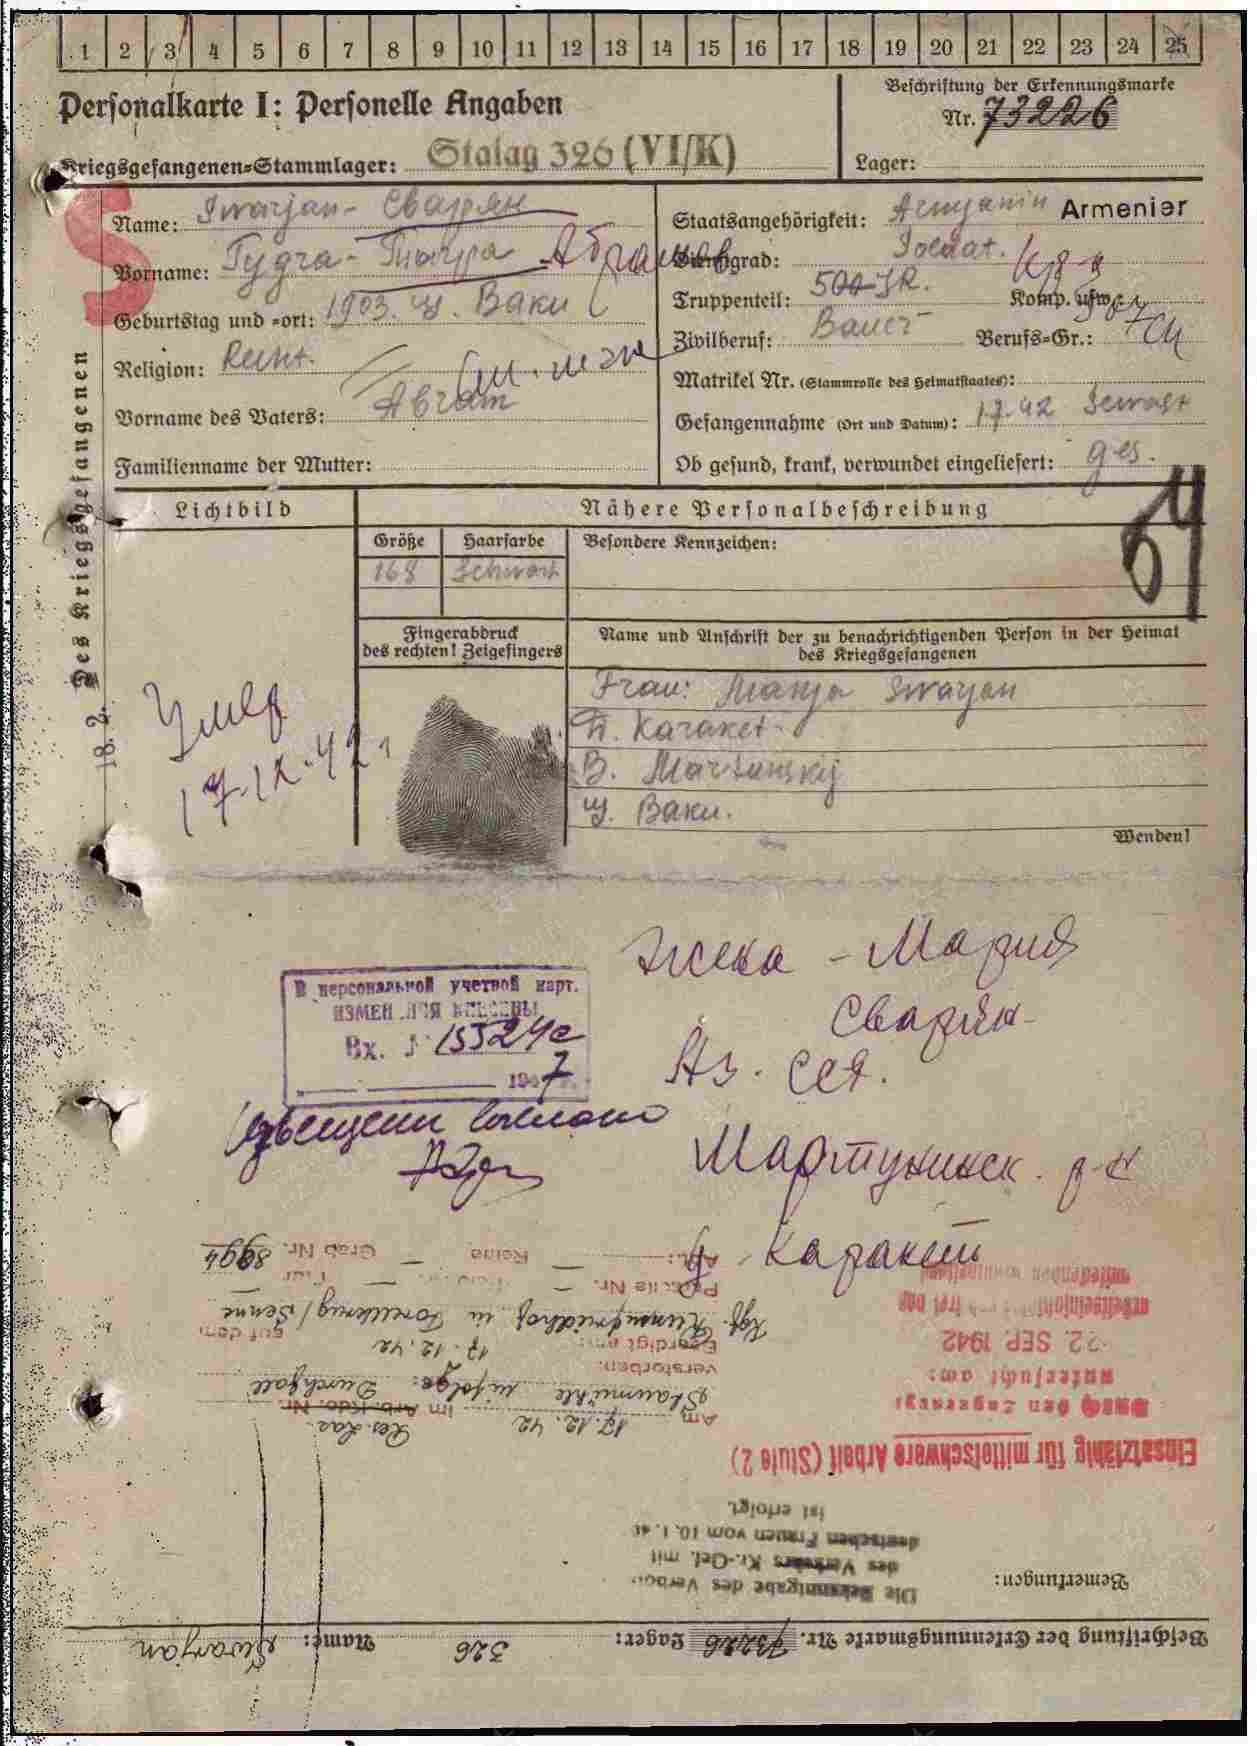 1 2 3 4 5 6 7 8 9 10 11 12 13 14 15 16 17 18 19 20 21 22 23 24 25
Personalkarte I: Personelle Angaben
Beschriftung der Erkennungsmarke
Nr. 73226
Kriegsgefangenen-Stammlager: Stalag 326 (VI/K)
Lager:
S
Des Kriegsgefangenen
Name: Swarjan - Сварян
Vorname: Гудга - Абрамов
Geburtstag und -ort: 1903. Ваки
Religion:
Vorname des Vaters: Abram
Familienname der Mutter:
Staatsangehörigkeit: Armjanin Armenier
Dienstgrad: Soldat.
Truppenteil: 500 JR. Komp. usw.:
Zivilberuf: Bauer Berufs-Gr.:
Matrikel Nr. (Stammrolle des Heimatstaates):
Gefangennahme (Ort und Datum): 1.7.42 Sewast
Ob gesund, krank, verwundet eingeliefert: ges.
Lichtbild
Nähere Personalbeschreibung
Größe Haarfarbe Besondere Kennzeichen:
168 Schwarz
Fingerabdruck
des rechten! Zeigefingers
Name und Anschrift der zu benachrichtigenden Person in der Heimat
des Kriegsgefangenen
Frau: Manja Swarjan
Karaket
В. Martunskij
Ваки.
Wenden!
18. 2.
Умер
17.12.42
Жена - Мария
Сварян
Аз. ССР.
Мартунинск. р-н
Каракет
В персональной учетной карт.
ИЗМЕНЕНИЯ ВНЕСЕНЫ
Вх. № 15524с
1947
Beschriftung der Erkennungsmarke Nr. 73226 Lager: 326 Name: Swarjan
Bemerkungen:
Die Bekanntgabe des Verbots
des Verkehrs Kr.-Gef. mit
deutschen Frauen vom 10. 1. 40
ist erfolgt.
Einsatzfähig für mittelschwere Arbeit (Stufe 2)
untersucht am:
22. SEP. 1942
Am 17.12.42 im Arb. Kdo. Nr. Res. Laz.
Staumühle infolge: Durchfall
verstorben.
Beerdigt am: 17.12.42 auf dem
Kgf. Russenfriedhof in Forellkrug/Senne
Parzelle Nr. — Flur —
Reihe — Grab Nr. 8994